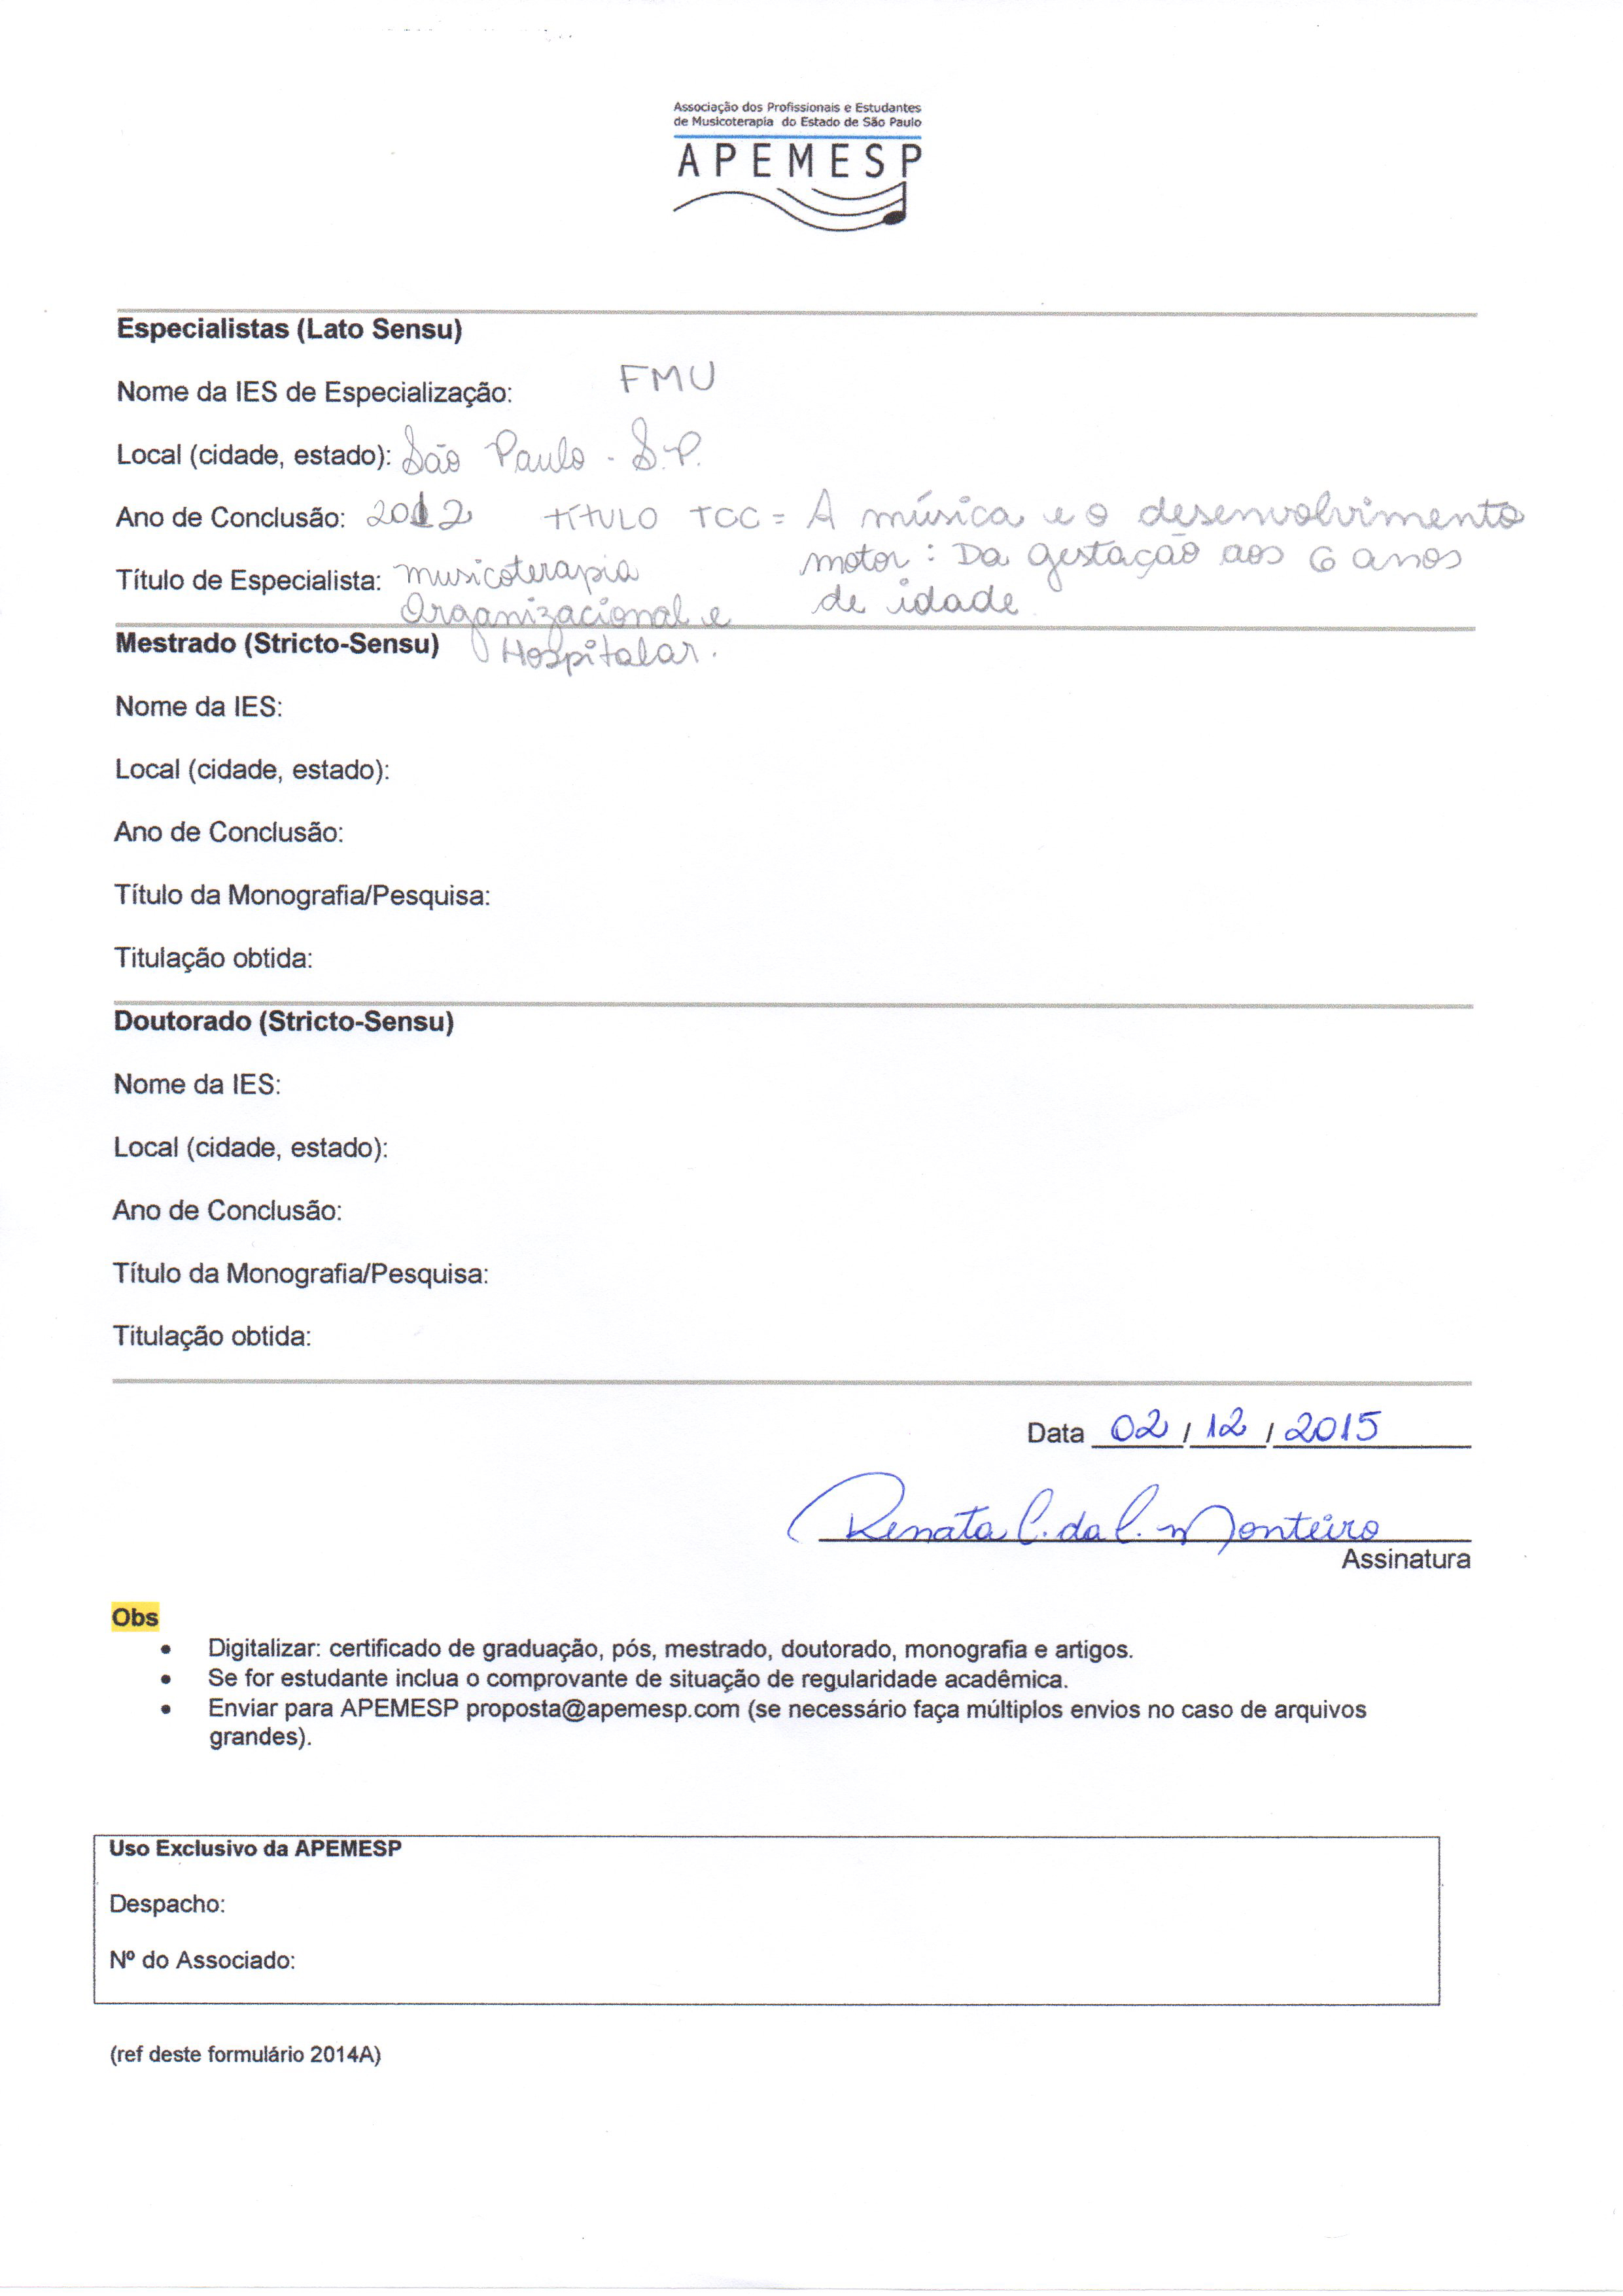 Associação dos Profissionais e Estudantes
de Musicoterapia do Estado de São Paulo
APEMESP
Especialistas (Lato Sensu)
Nome da IES de Especialização: FMU
Local (cidade, estado): São Paulo - S.P.
Ano de Conclusão: 2012 TÍTULO TCC = A música e o desenvolvimento
motor: Da gestação aos 6 anos
Título de Especialista: musicoterapia
de idade
Organizacional e
Mestrado (Stricto-Sensu) Hospitalar.
Nome da IES:
Local (cidade, estado):
Ano de Conclusão:
Título da Monografia/Pesquisa:
Titulação obtida:
Doutorado (Stricto-Sensu)
Nome da IES:
Local (cidade, estado):
Ano de Conclusão:
Título da Monografia/Pesquisa:
Titulação obtida:
Data 02 / 12 / 2015
Renata C. da C. Monteiro
Assinatura
Obs
• Digitalizar: certificado de graduação, pós, mestrado, doutorado, monografia e artigos.
• Se for estudante inclua o comprovante de situação de regularidade acadêmica.
• Enviar para APEMESP proposta@apemesp.com (se necessário faça múltiplos envios no caso de arquivos
grandes).
Uso Exclusivo da APEMESP
Despacho:
Nº do Associado:
(ref deste formulário 2014A)